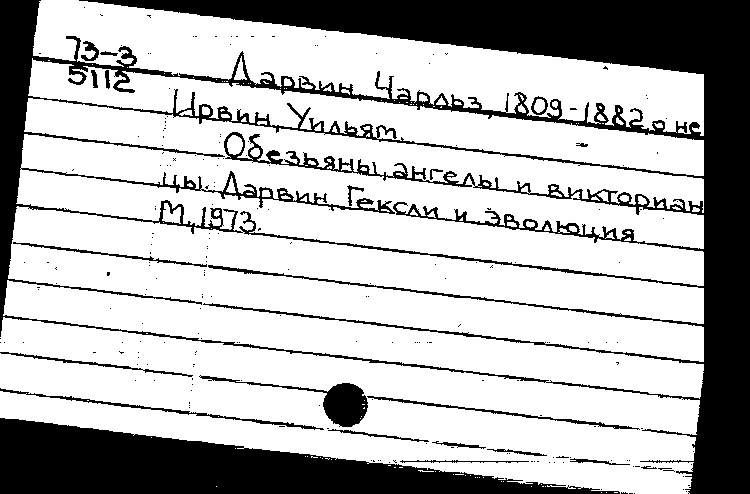 73-3
5112
Дарвин, Чарльз, 1809-1882, о не
Ирвин, Уильям.
Обезьяны, ангелы и викториан
цы. Дарвин, Гексли и эволюция
М., 1973.